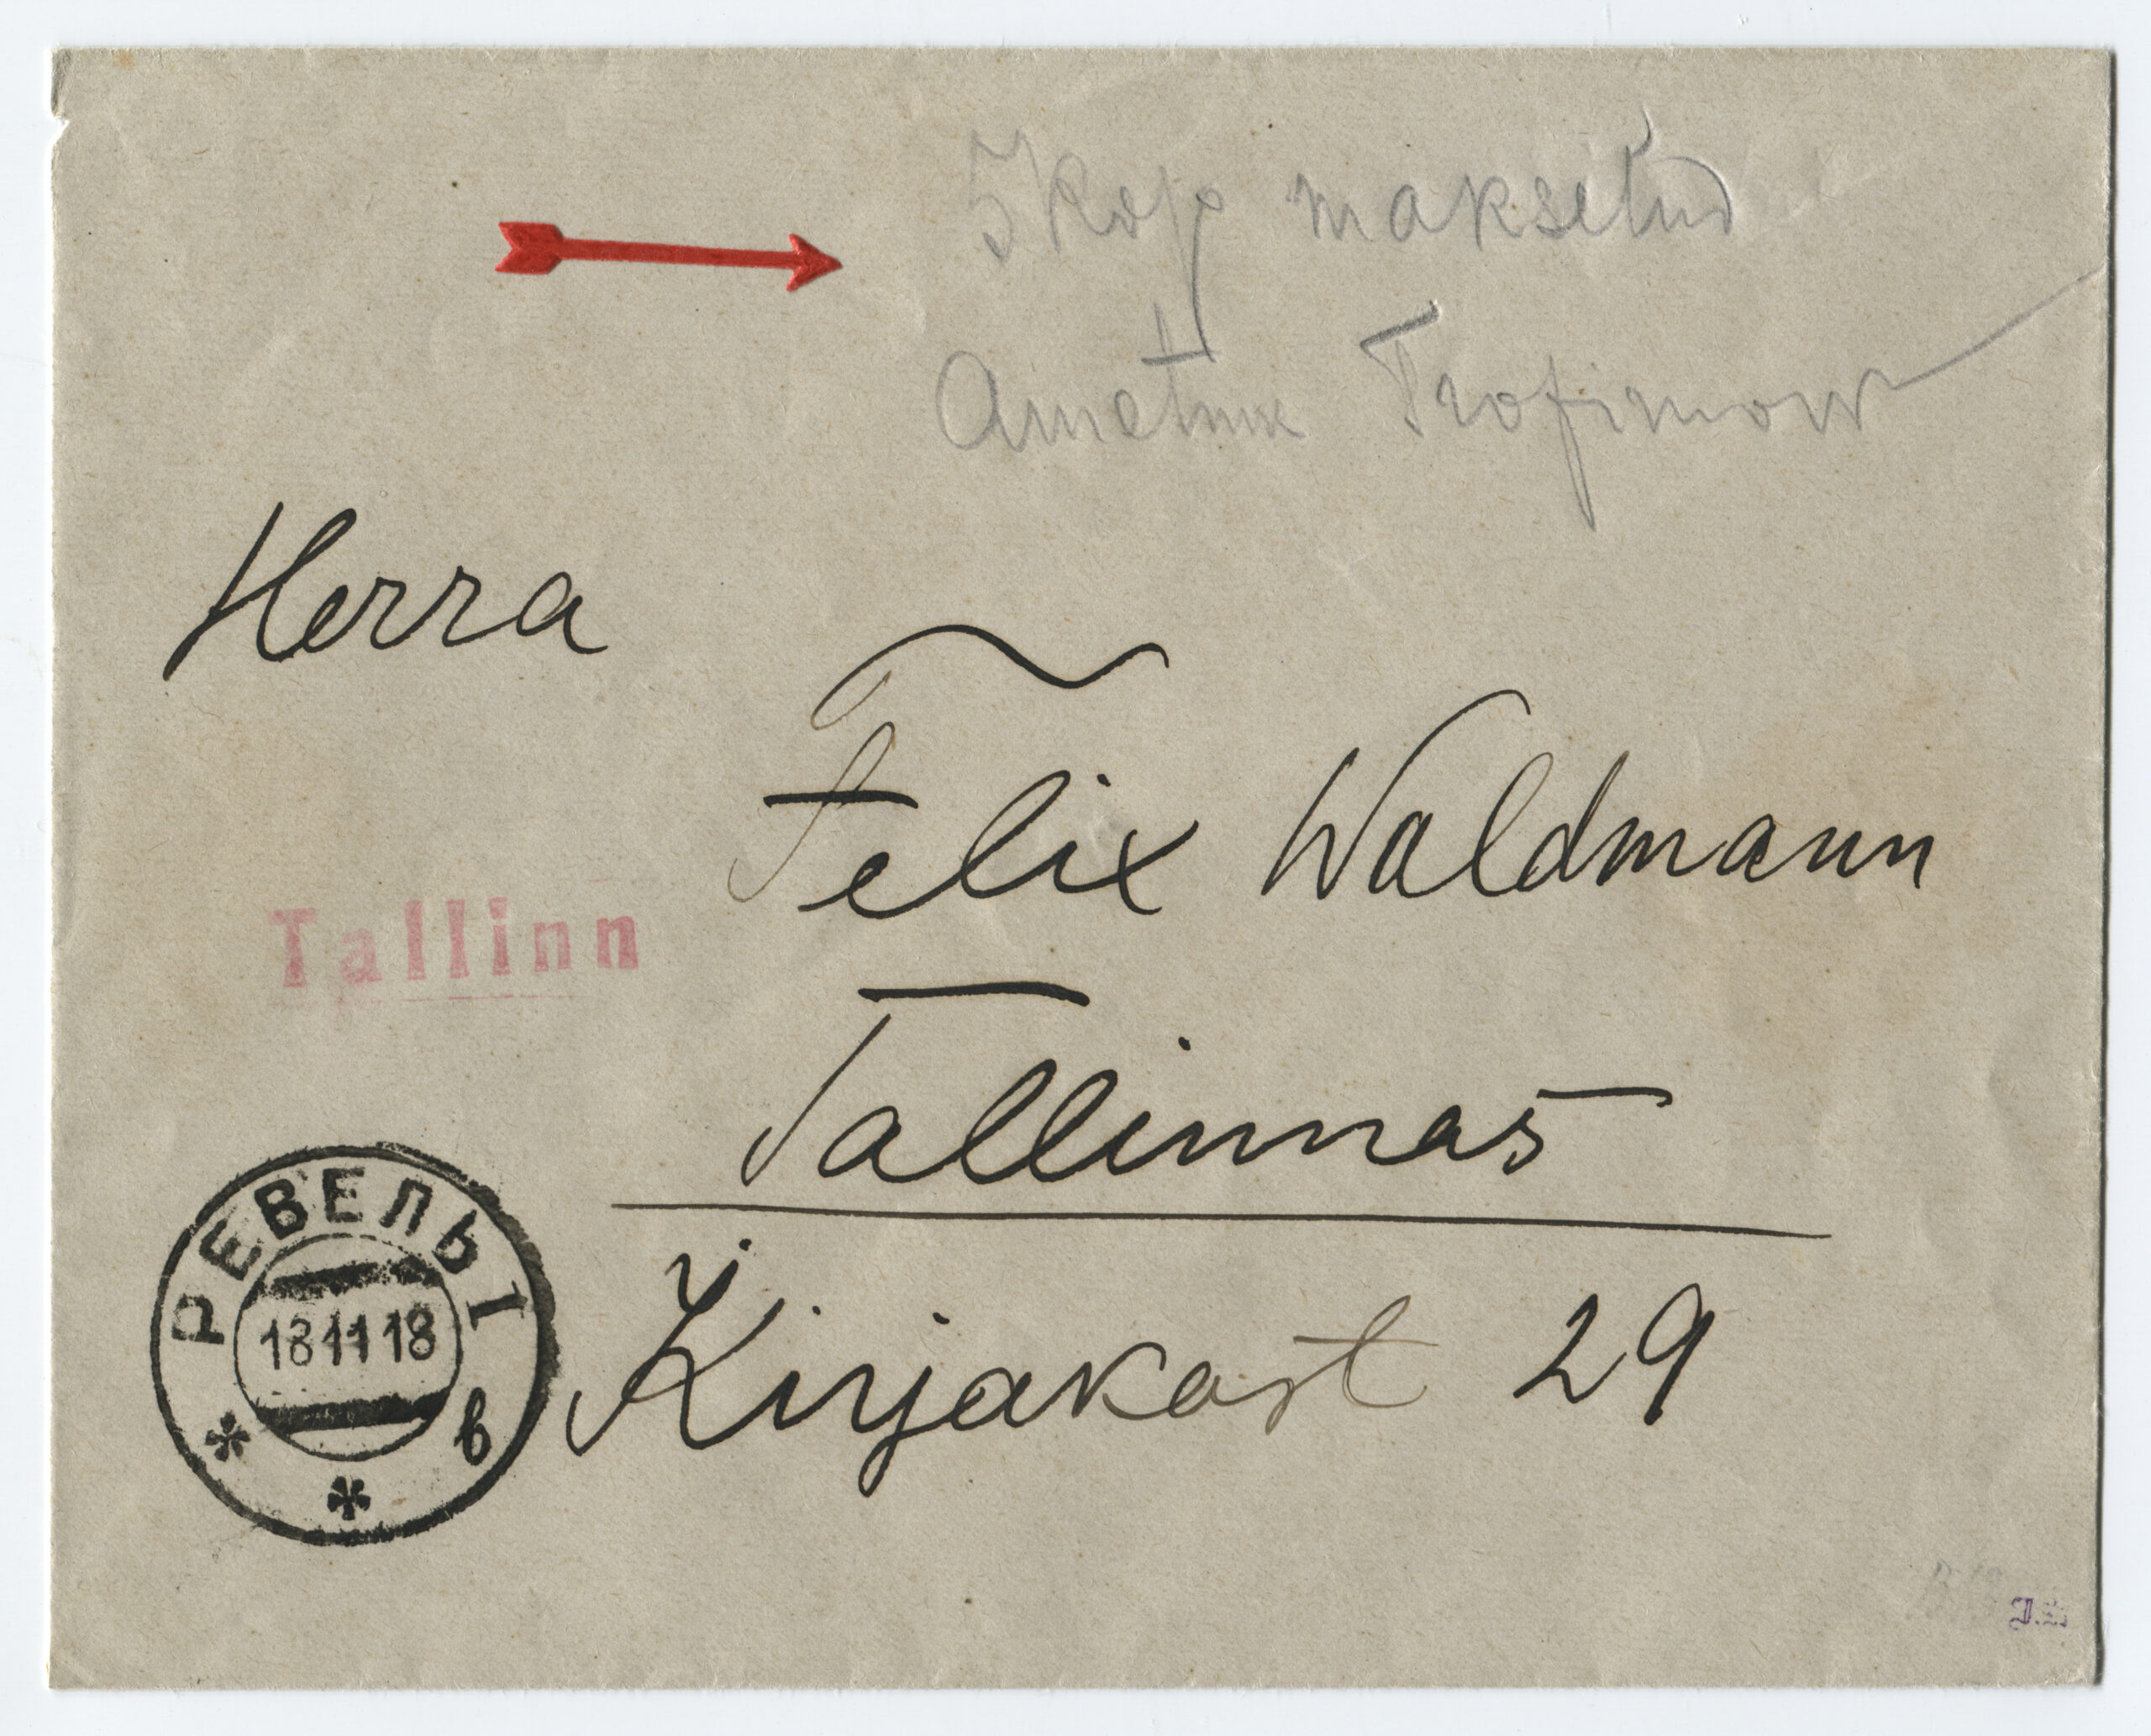 5 kop maksetud
Ametnik Trofimow
Herra
Felix Waldmann
Tallinn
Tallinnas
Kirjakast 29
РЕВЕЛЬ I
18 11 18
в